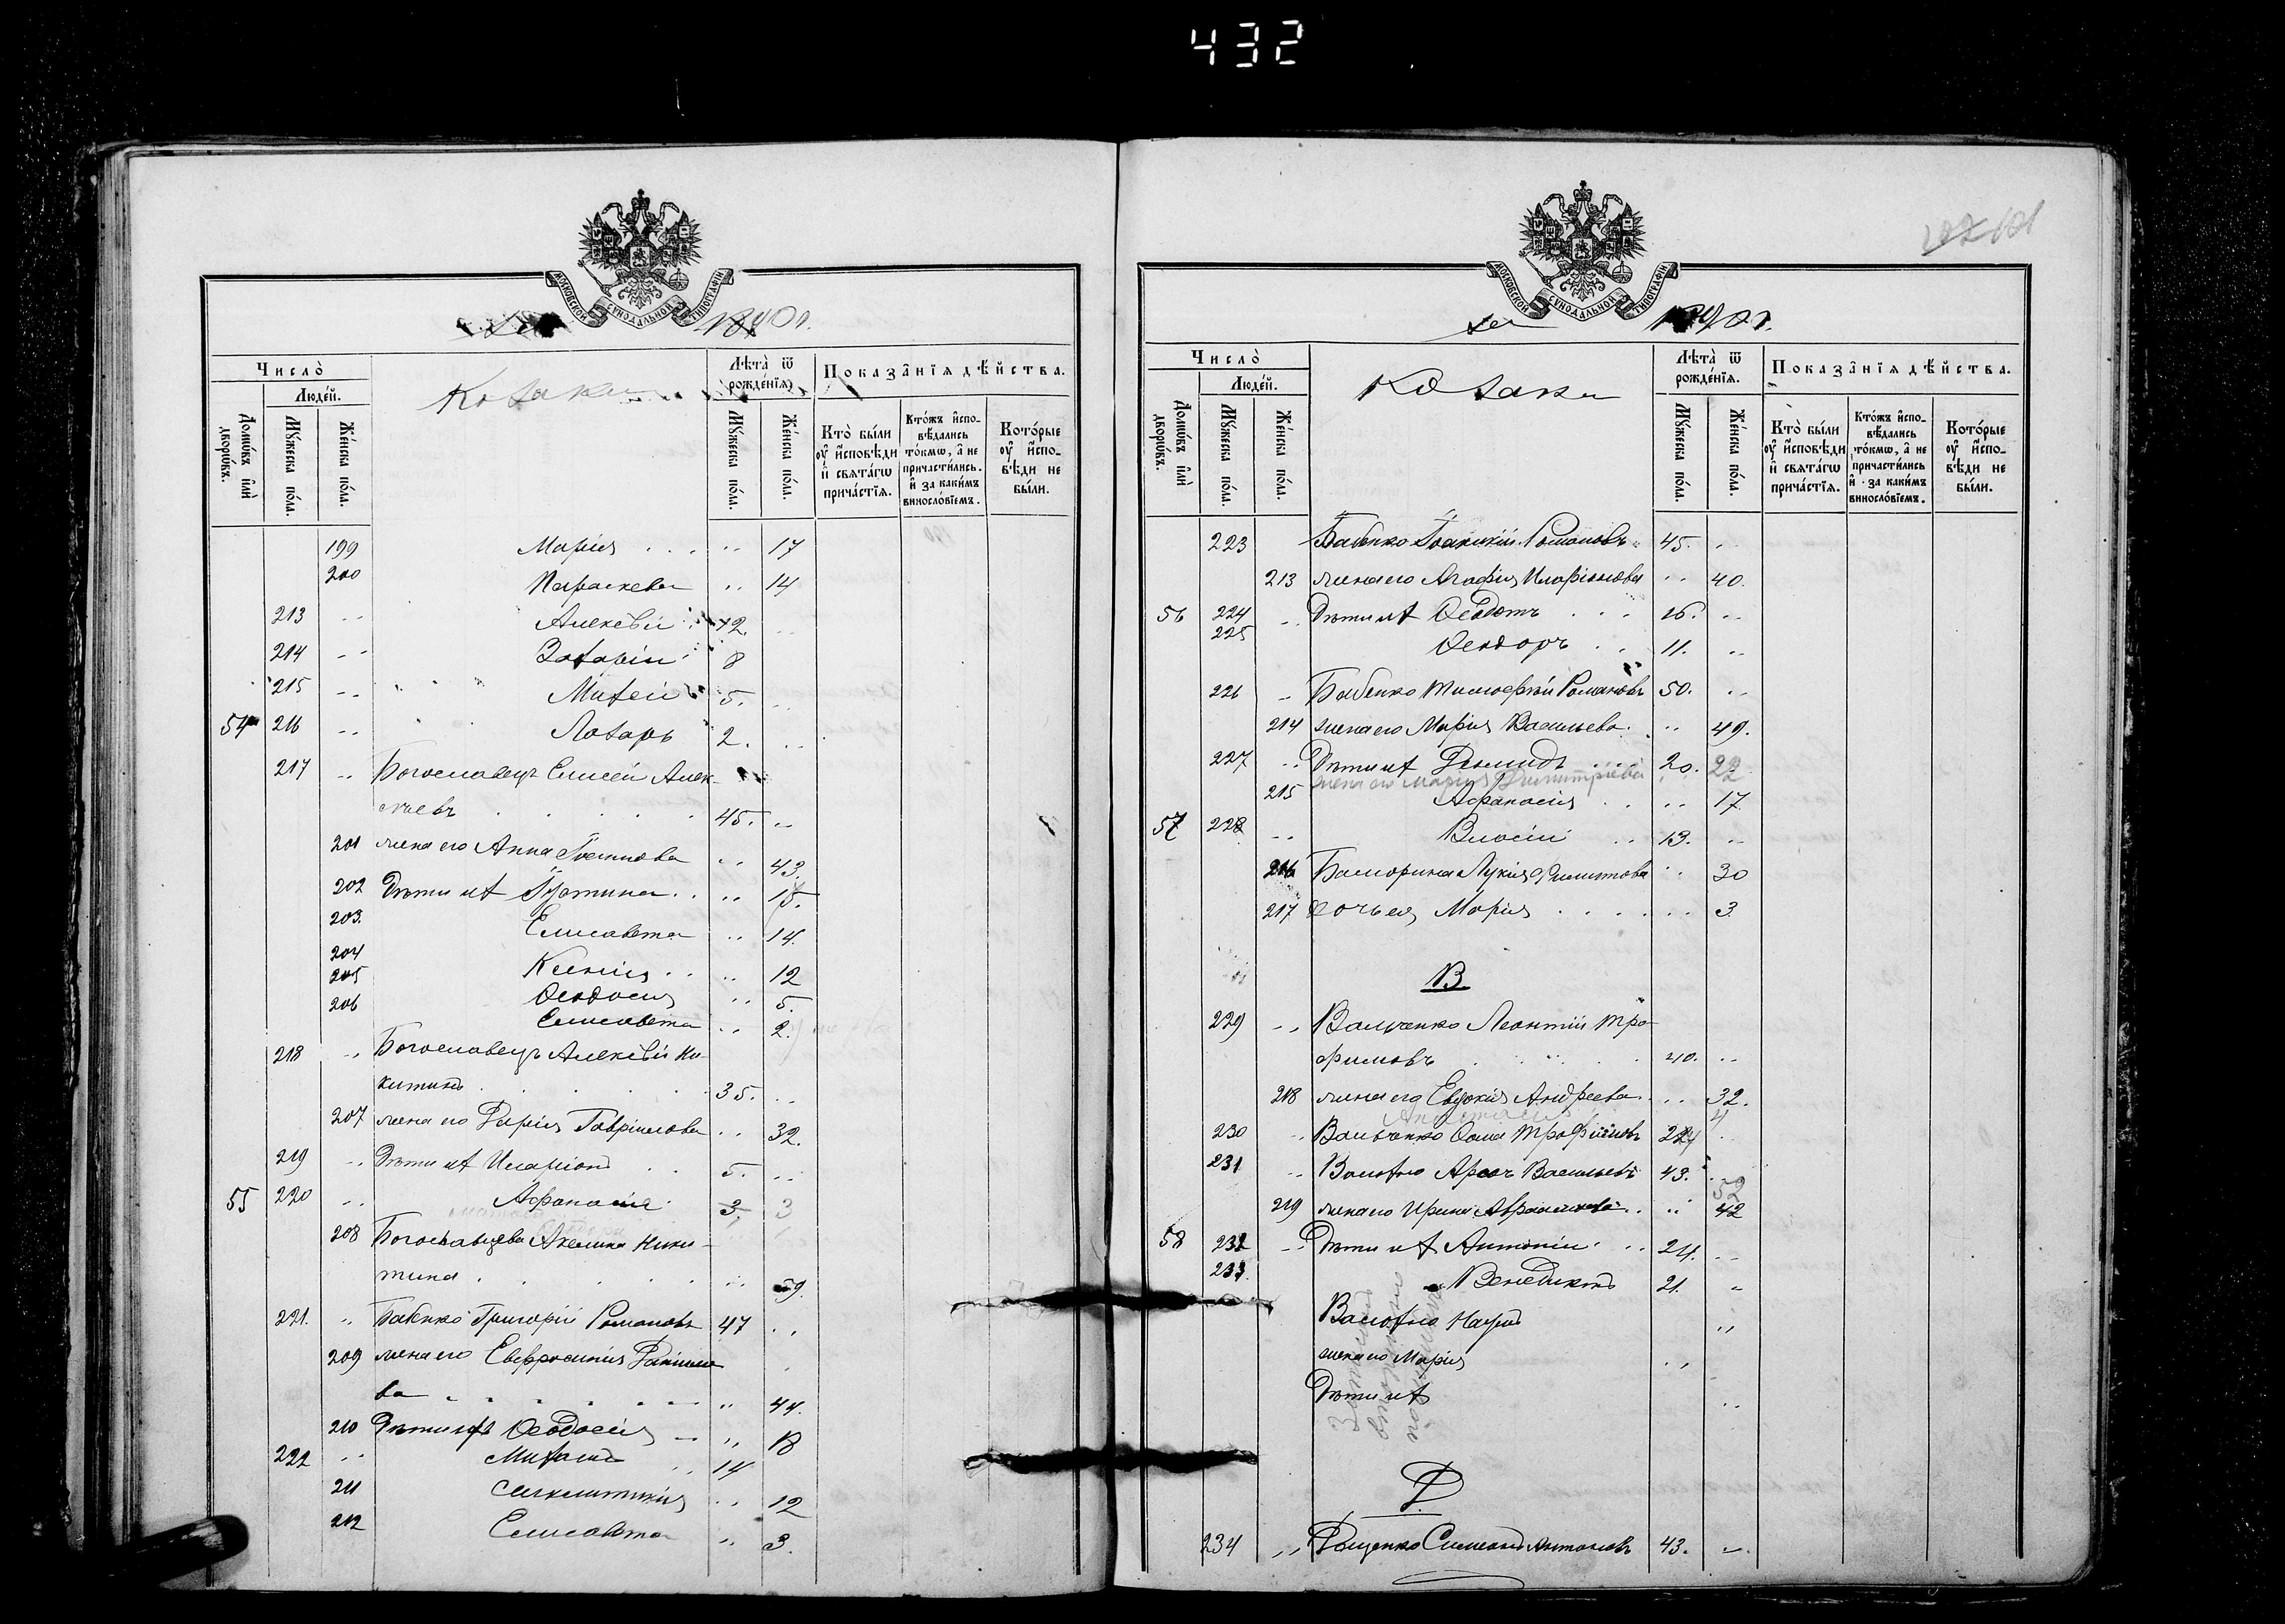 432
МОСКОВСКОЙ СѴНОДАЛЬНОЙ ТИПОГРАФІИ
Число̀
Людéй.
Домѡ́въ и҆лѝ дворѡ́въ.
Мꙋ́жеска по́ла.
Же́нска по́ла.
Козаки
Лѣта̀ ѿ рожде́нїѧ.
Мꙋ́жеска по́ла.
Же́нска по́ла.
Показа̂нїѧ дѣ́йства.
Кто̀ бы́ли ᲂу҆ и҆сповѣди и҆ свѧта́гѡ прича́стїѧ.
Кто́жъ и҆спо-вѣдались то́кмѡ, а҆ не причасти́лись. и҆ за каки́мъ винословїемъ.
Кото́рые ᲂу҆ и҆спо-вѣди не бы́ли.
199 Марія . . . 17
200 Параскева 14
213 Алексѣй 12.
214 Захарій 8
215 Михей 5.
54 216 Лазарь 2.
217 Богославецъ Елисей Алек-
сѣевъ 45.
201 жена его Анна
43.
202 Дѣти их 15.
203 Елисавета 14.
204
205 Ксенія 12
206 Ѳеодосія 5.
Елисавета 2.
218 Богославецъ Алексѣй Ни-
китинъ 35.
207 жена его Дарія Гавріилова 32.
219 Дѣти их Иларіонъ 5.
55 220 Афанасій 3. 3
208 Богославцева Акелина Ники-
тина 59.
221. Бабенко Григорій Романовъ 47
209 жена его Евфросинія Даніило
ва 44.
210 Дѣти их Ѳеодосія 18
222 Михаилъ 14
211 Синклитикія 12
212 Елисавета 3.
МОСКОВСКОЙ СѴНОДАЛЬНОЙ ТИПОГРАФІИ
Число̀
Людéй.
Домѡ́въ и҆лѝ дворѡ́въ.
Мꙋ́жеска по́ла.
Же́нска по́ла.
Козаки
Лѣта̀ ѿ рожде́нїѧ.
Мꙋ́жеска по́ла.
Же́нска по́ла.
Показа̂нїѧ дѣ́йства.
Кто̀ бы́ли ᲂу҆ и҆сповѣди и҆ свѧта́гѡ прича́стїѧ.
Кто́жъ и҆спо-вѣдались то́кмѡ, а҆ не причасти́лись и҆ за каки́мъ винословїемъ.
Кото́рые ᲂу҆ и҆спо-вѣди не бы́ли.
223 Бабенко Іоанникій Романовъ 45.
213 жена его Агафія Иларіонова 40.
56 224 Дѣти их Ѳеодотъ 16.
225 Ѳеодоръ 11.
226 Бабенко Тимофѣй Романовъ 50.
214 жена его Марія Васильева 49.
227 Дѣти их Демидъ 20. 22
жена его Марія Димитріева
215 Афанасія 17
57 228 Власій 13.
216 Лукія Филипова 30
217 дочь ея Марія 3.
В.
229 Вальченко Леонтій Тро-
фимовъ 40.
218 жена его Евдокія Андреева 32.
Анастасія
230 Вальченко Ѳома Трофимовъ
231 Васильевъ 43.
219 жена его Ирина 42
58 232 Дѣти их Антоній 24.
233. Венедиктъ 21.
Наумъ
жена его Марія
Дѣти их
Д.
234 Дыщенко Симеонъ Антоновъ 43.